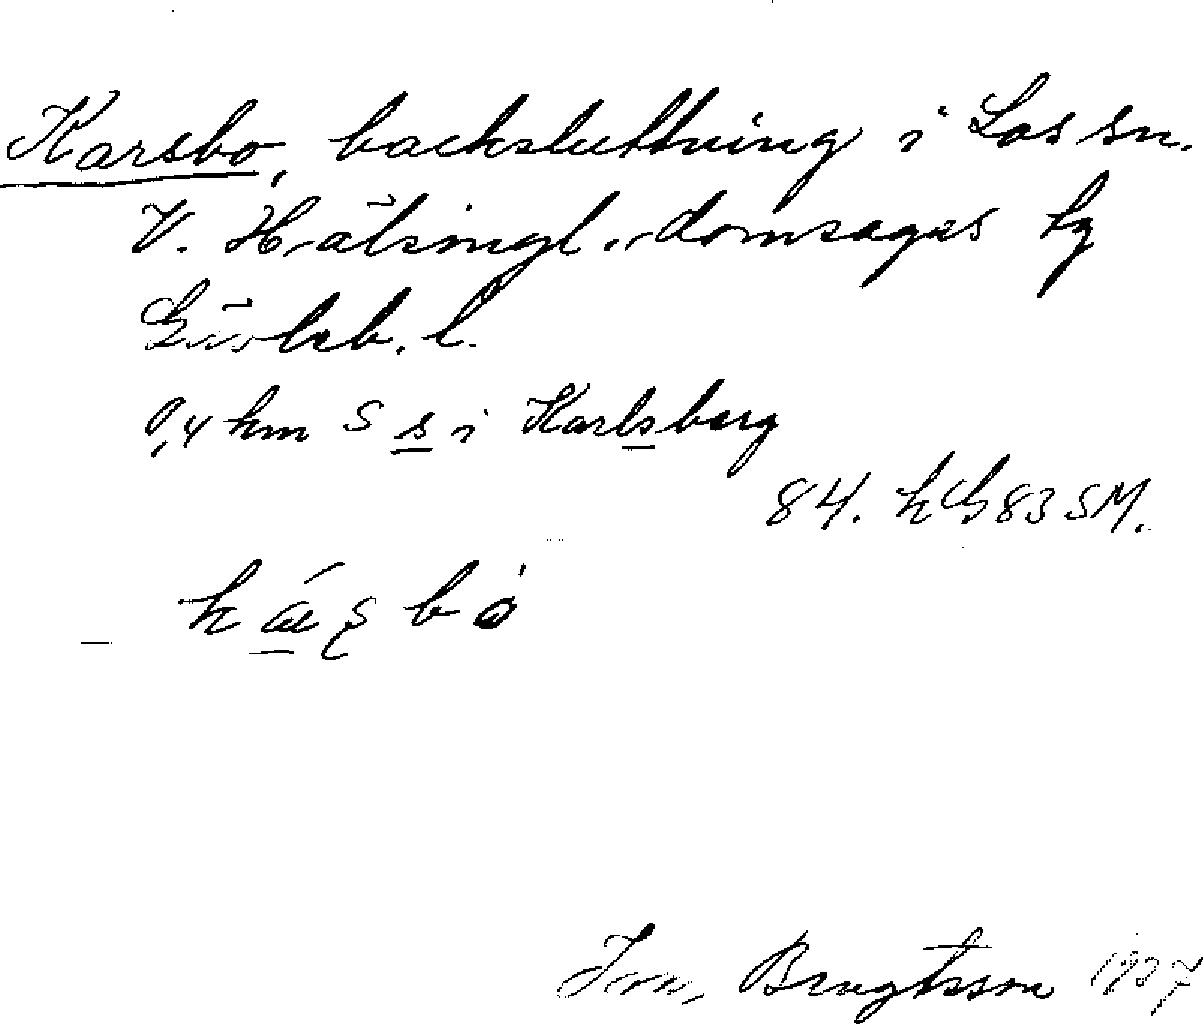 Karsbo, backsluttning i Los sn.
V. Hälsingl. domsagas tg
Gävleb. l.
0,4 km S s i Karlsberg
84. h G83 SM.
Bengtsson 1937